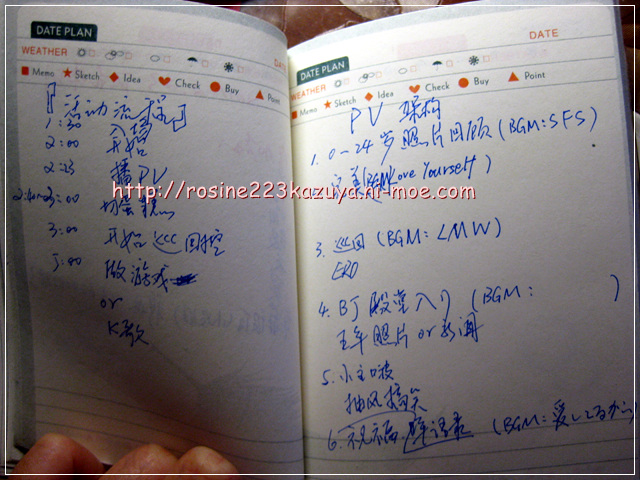 DATE PLAN
WEATHER
DATE
Memo Sketch Idea Check Buy Point
[活动流程]
1:30 入场
2:00 开始
2:25 播PV
3:00 切蛋糕
3:00 开始巡回控
5:00 做游戏
or
K歌
DATE PLAN
DATE
WEATHER
Memo Sketch Idea Check Buy Point
PV 架构
1. 0-24岁照片回顾(BGM:SFS)
完美(BGM:Love Yourself)
3. 巡回(BGM: LMW)
ERO
4. BJ殿堂入り (BGM: )
五年照片 or 新闻
5. 小主
抽风搞笑
6. 祝福 (BGM:愛してるから)
http://rosine223kazuya.hi-moe.com